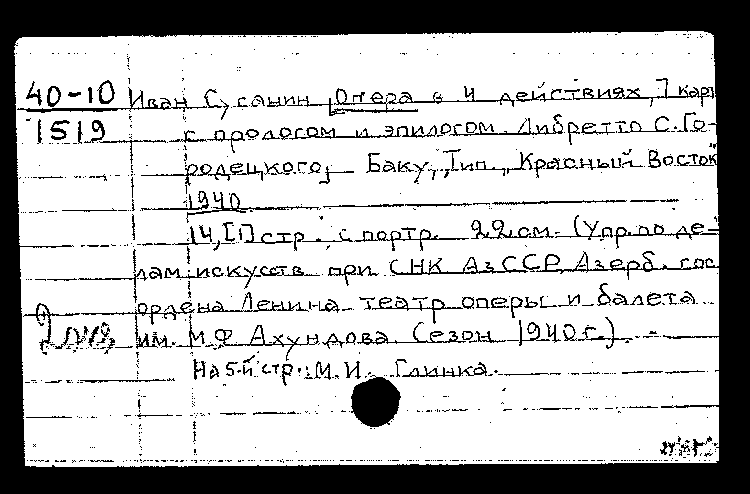 40-10
1519
Иван Сусанин, Опера в 4 действиях, 7 карт
с прологом и эпилогом. Либретто С. Го-
родецкого, Баку, Тип. "Красный Восток"
1940
14, [1] стр. с портр. 22 см. (Упр. по де-
лам искусств при СНК АзССР, Азерб. гос
ордена Ленина театр оперы и балета
им. М.Ф Ахундова. (Сезон 1940 г.). -
На 5-й стр.: М. И. Глинка.